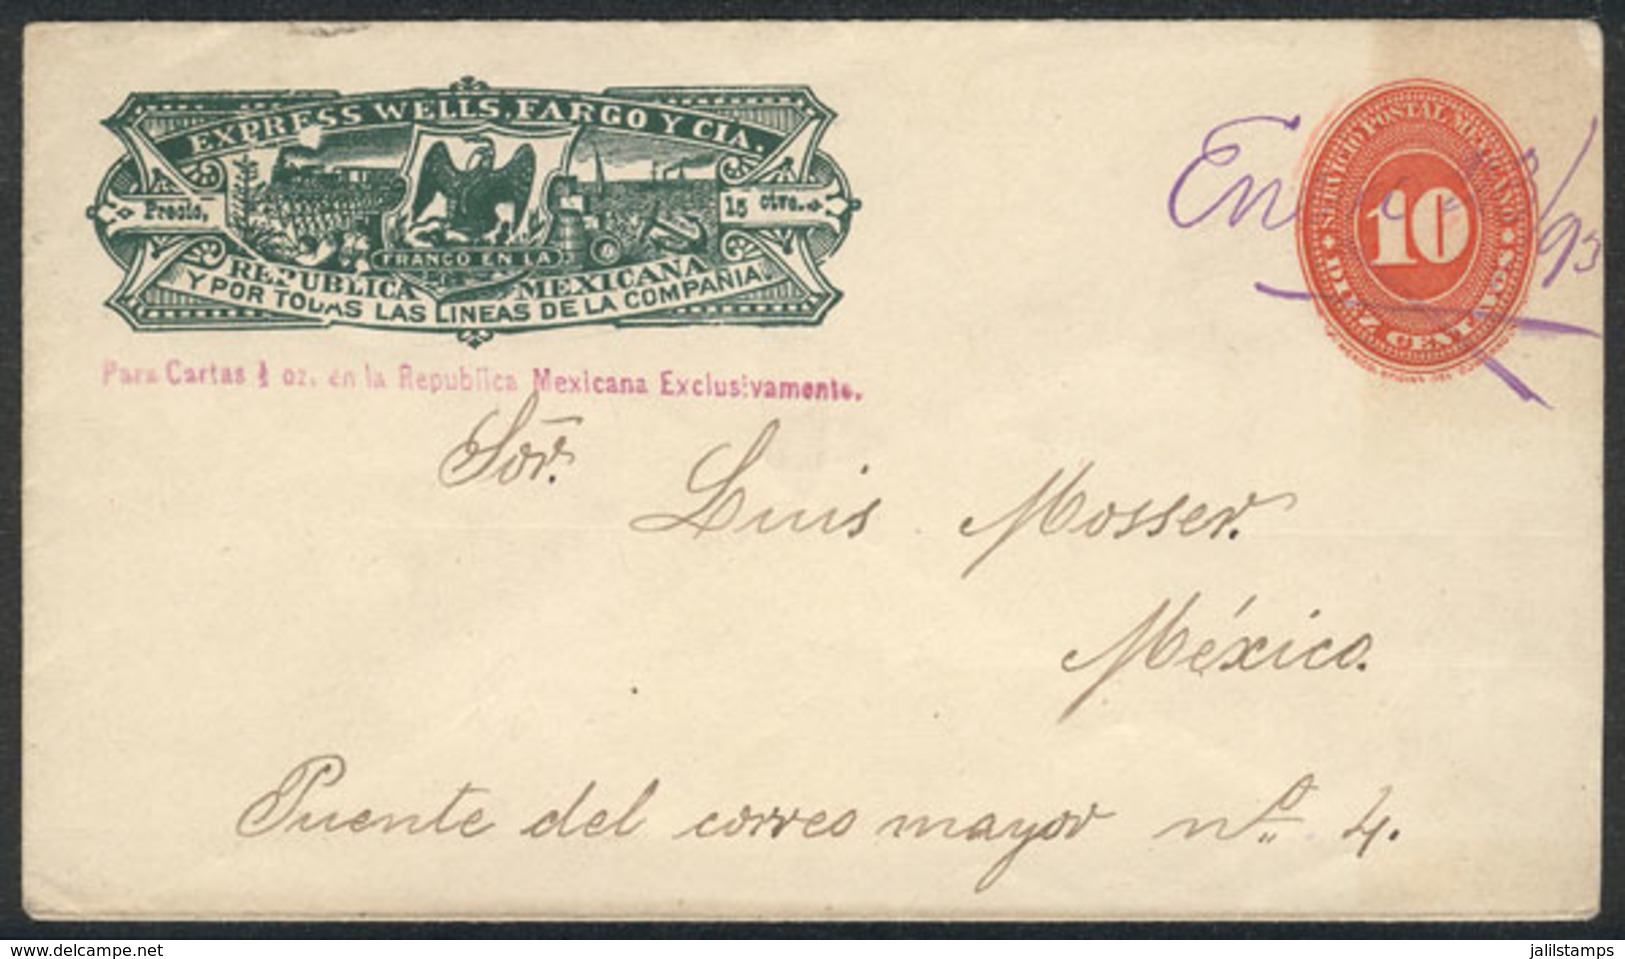 EXPRESS WELLS, FARGO Y CIA.
Precio, 15 ctvs.
FRANCO EN LA
REPUBLICA MEXICANA
Y POR TODAS LAS LINEAS DE LA COMPAÑIA.
Para Cartas ½ oz. en la Republica Mexicana Exclusivamente.
SERVICIO POSTAL MEXICANO
10
DIEZ CENTAVOS
En /93
Sor. Luis Mosser.
México.
Puente del correo mayor no. 4.
www.delcampe.net
jalilstamps